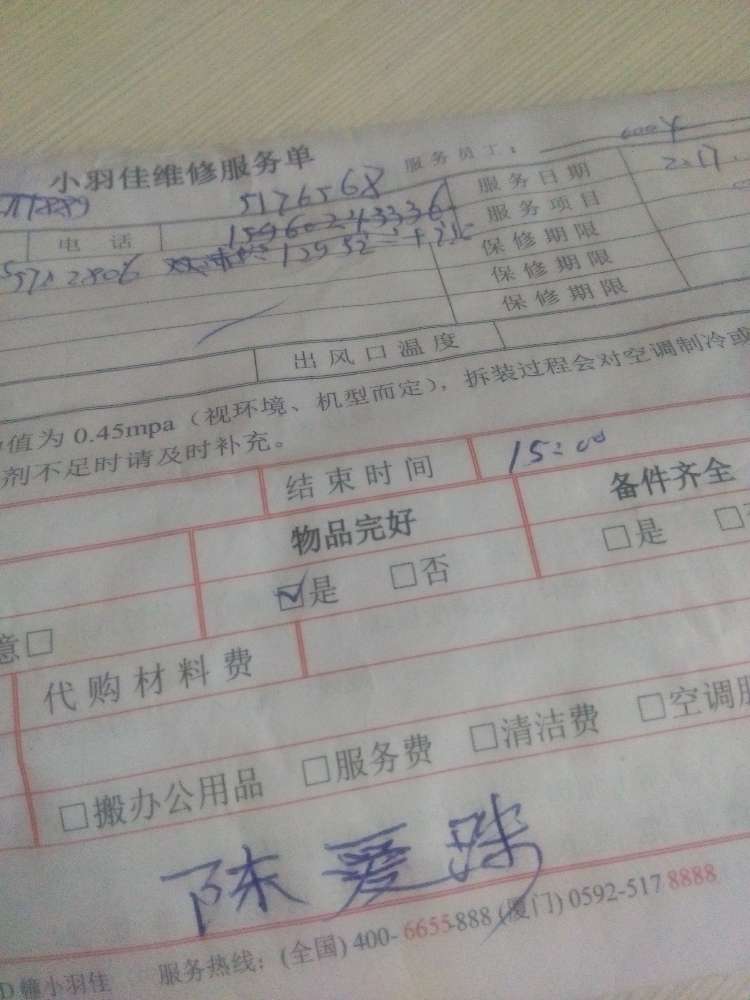 小羽佳维修服务单 服务员工:
5126568 服务日期 2.17.
电话 15960243336 服务项目
保修期限
保修期限
保修期限
出风口温度
值为 0.45mpa(视环境、机型而定),拆装过程会对空调制冷或
剂不足时请及时补充。
结束时间 15:00
物品完好 备件齐全
☑是 □否 □是 □
意□
代购材料费
□搬办公用品 □服务费 □清洁费 □空调服
陈爱珠
D.维小羽佳 服务热线:(全国) 400-6655-888 (厦门) 0592-517 8888